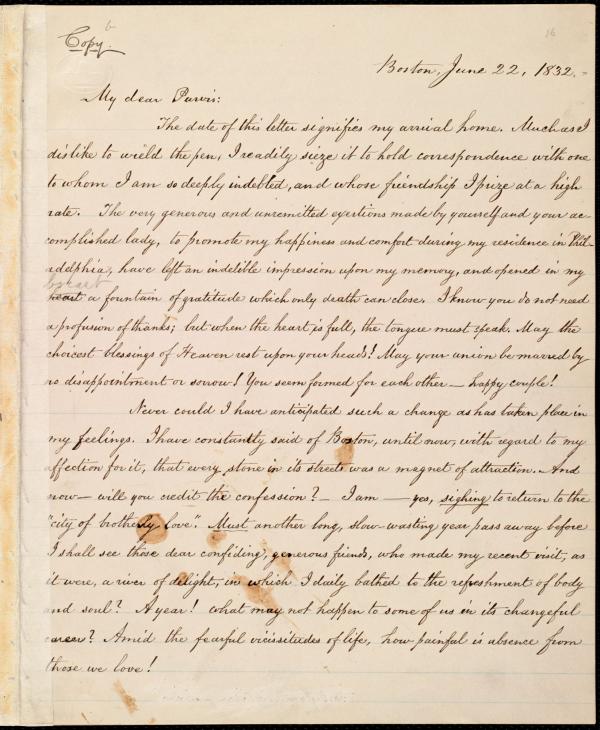 6
16
Copy.
Boston, June 22, 1832.
My dear Purvis:
The date of this letter signifies my arrival home. Much as I
dislike to wield the pen, I readily sieze it to hold correspondence with one
to whom I am so deeply indebted, and whose friendship I prize at a high
rate. The very generous and unremitted exertions made by yourself and your ac-
complished lady, to promote my happiness and comfort during my residence in Phil-
adelphia, have left an indelible impression upon my memory, and opened in my
breast
heart a fountain of gratitude which only death can close. I know you do not need
a profusion of thanks; but when the heart is full, the tongue must speak. May the
choicest blessings of Heaven rest upon your heads! May your union be marred by
no disappointment or sorrow! You seem formed for each other — happy couple!
Never could I have anticipated such a change as has taken place in
my feelings. I have constantly said of Boston, until now, with regard to my
affection for it, that every stone in its streets was a magnet of attraction. And
now — will you credit the confession? — I am — yes, sighing to return to the
"city of brotherly love". Must another long, slow-wasting year pass away before
I shall see those dear confiding, generous friends, who made my recent visit, as
it were, a river of delight, in which I daily bathed to the refreshment of body
and soul? A year! what may not happen to some of us in its changeful
career? Amid the fearful vicissitudes of life, how painful is absence from
those we love!